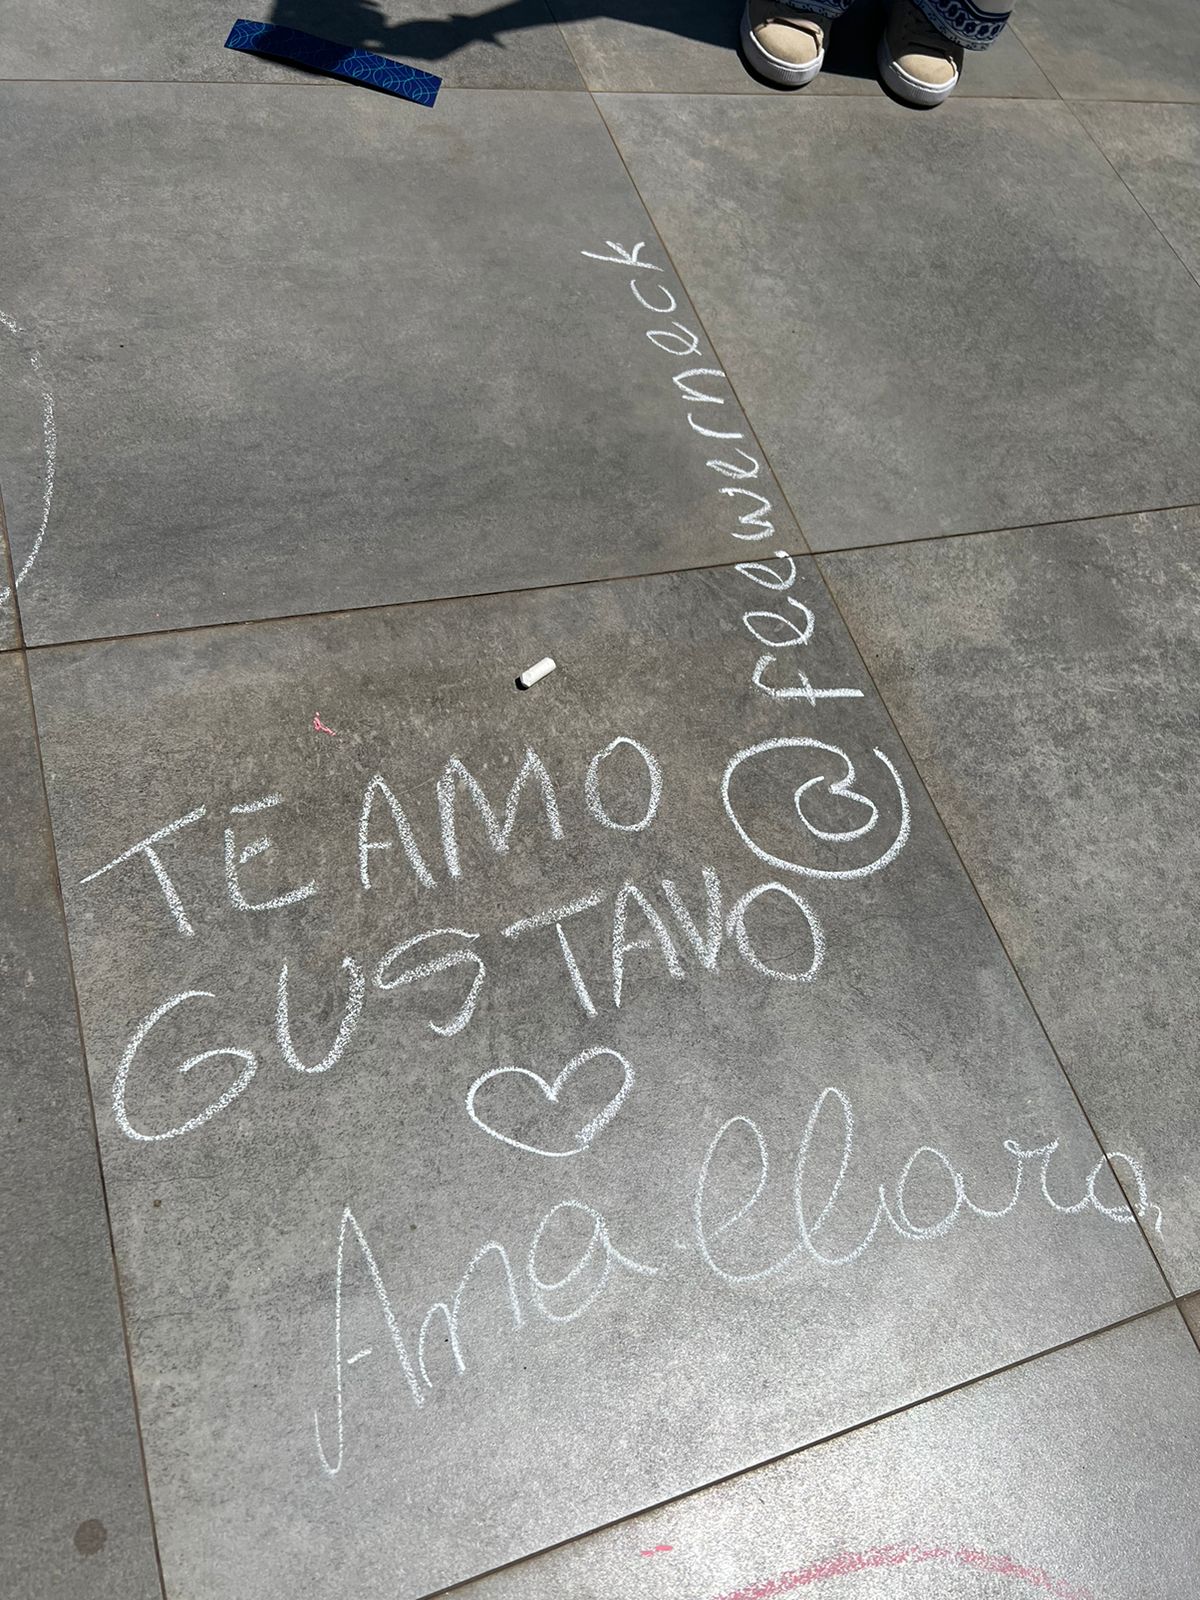 TE AMO
GUSTAVO
Ana Clara
@feewerneck